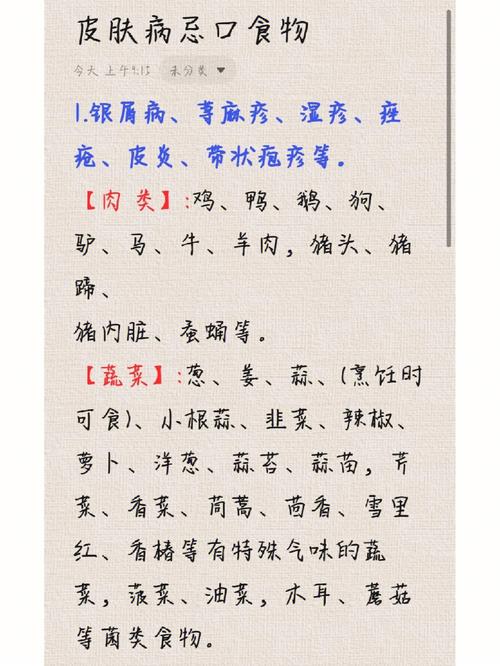 皮肤病忌口食物
今天 上午9:15 未分类
1.银屑病、荨麻疹、湿疹、痤
疮、皮炎、带状疱疹等。
【肉类】:鸡、鸭、鹅、狗、
驴、马、牛、羊肉，猪头、猪
蹄、
猪内脏、蚕蛹等。
【蔬菜】:葱、姜、蒜、(烹饪时
可食)、小根蒜、韭菜、辣椒、
萝卜、洋葱、蒜苔、蒜苗，芹
菜、香菜、茼蒿、茴香、雪里
红、香椿等有特殊气味的蔬
菜，菠菜、油菜，木耳、蘑菇
等菌类食物。